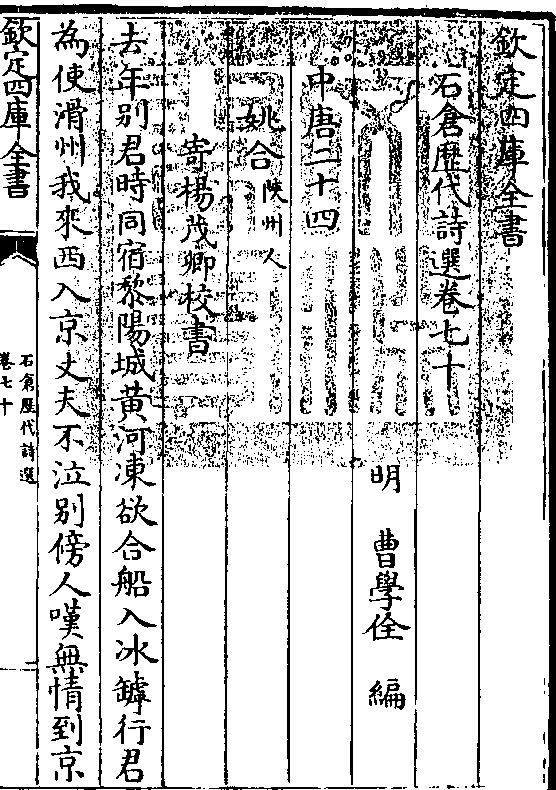 欽定四庫全書
石倉歷代詩選卷七十
明 曹學佺 編
中唐二十四
姚合陜州人
寄楊茂卿校書
去年别君時同宿黎陽城黃河凍欲合船入冰罅行君
為使滑州我來西入京丈夫不泣别傍人嘆無情到京
欽定四庫全書
石倉歷代詩選
卷七十